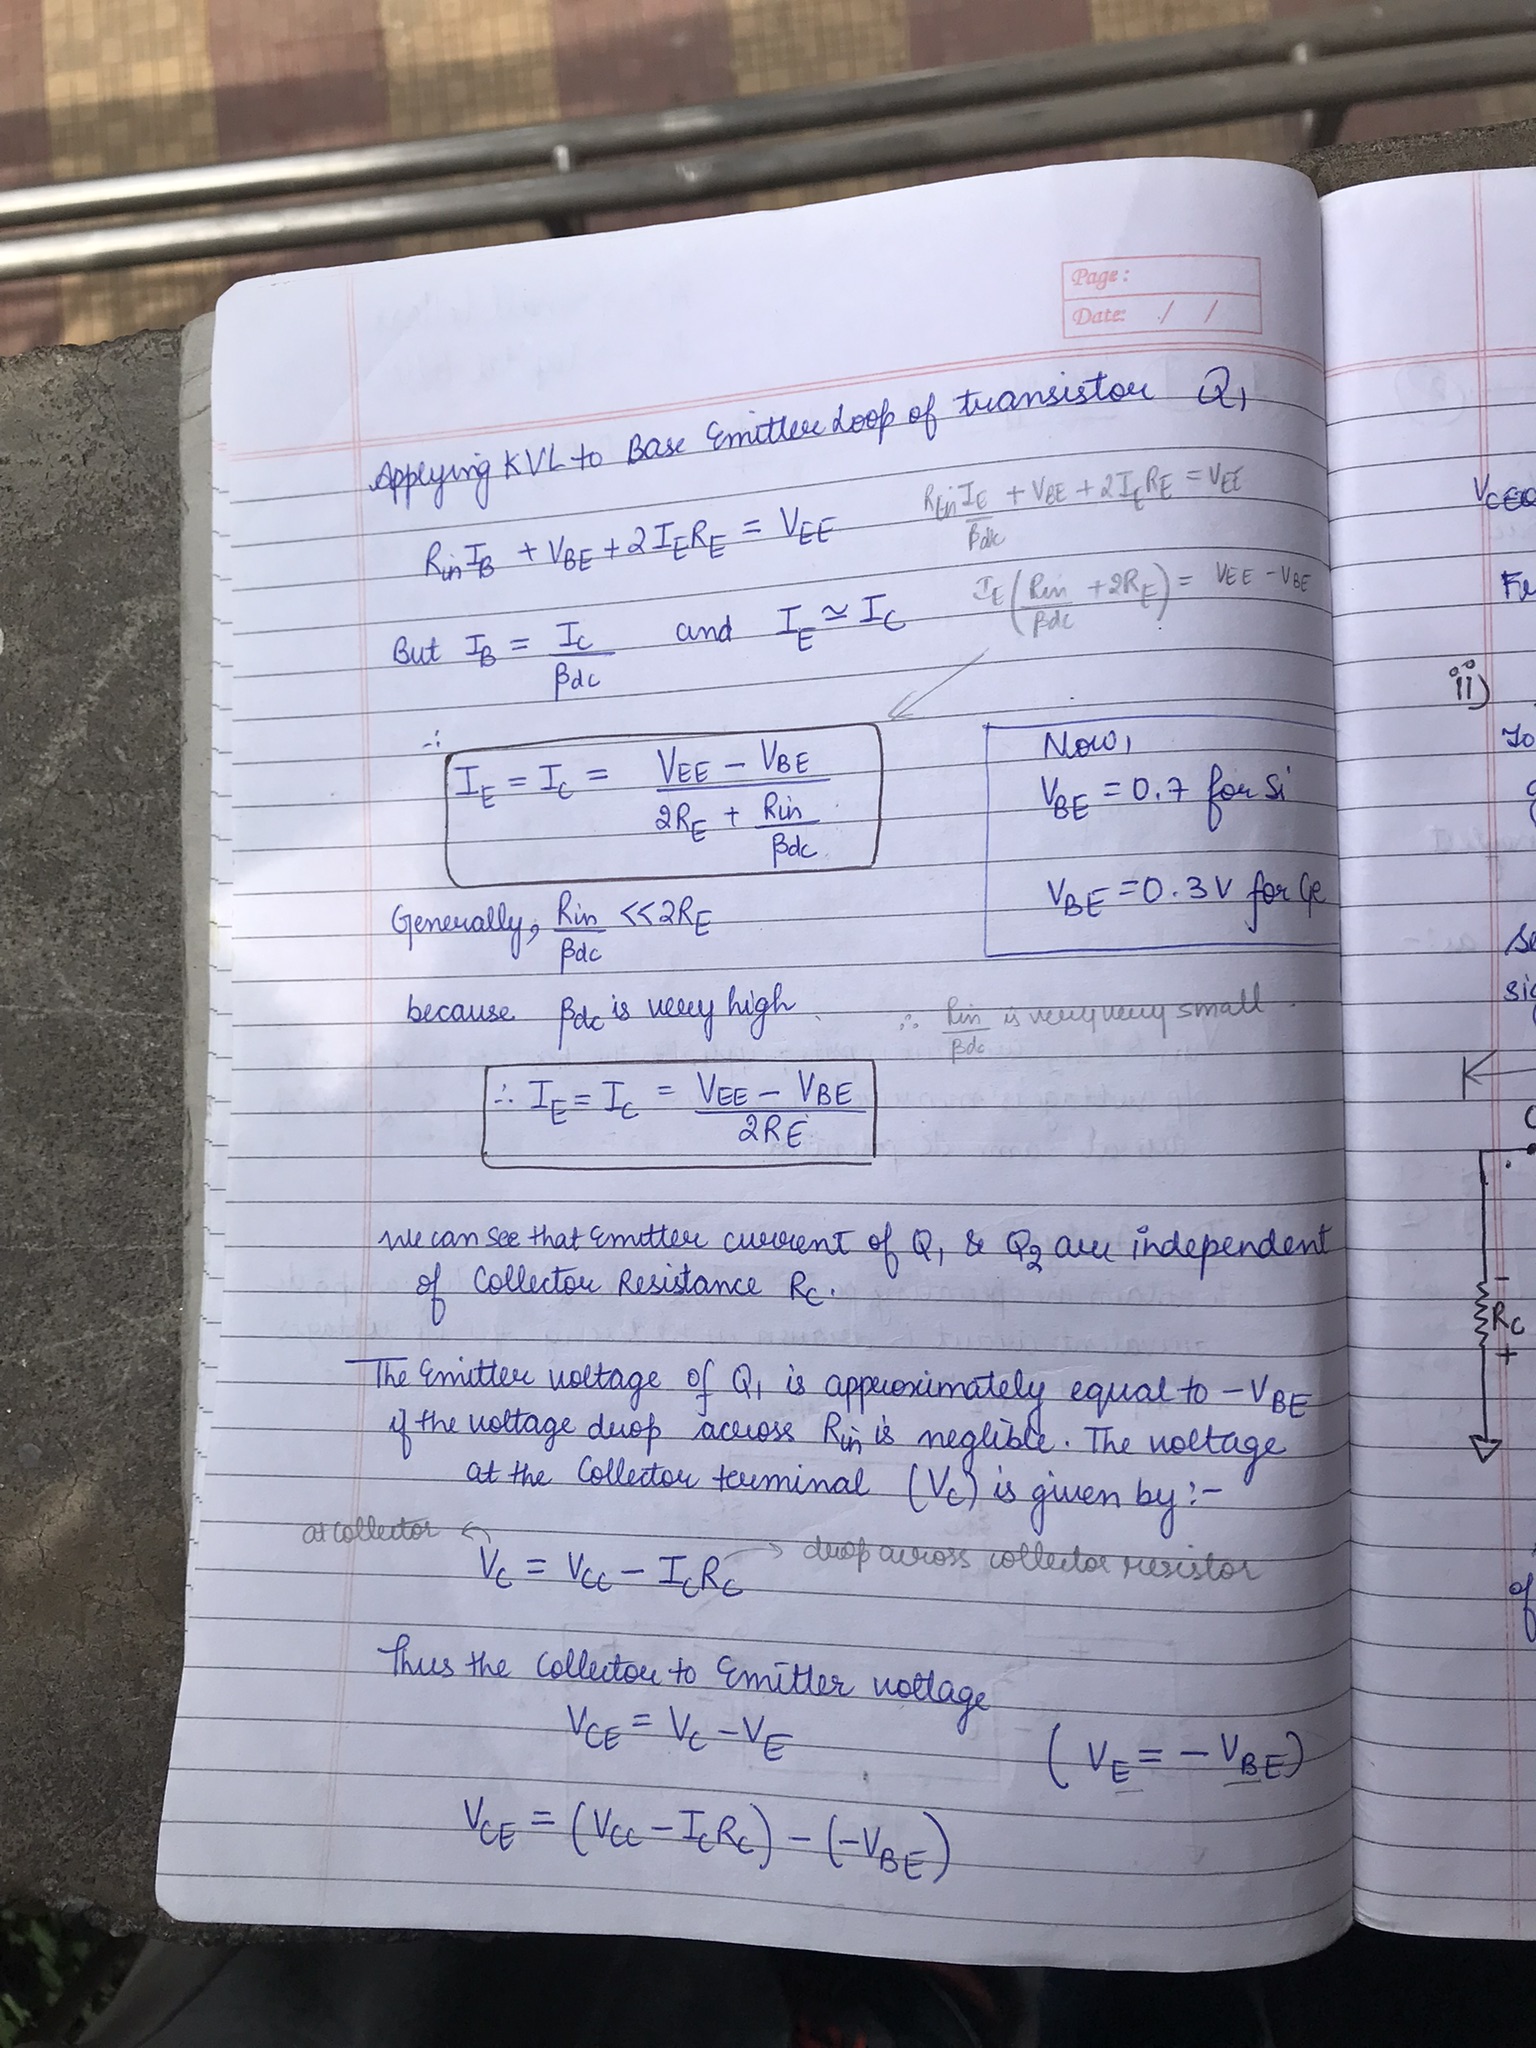 Page :
Date: / /
Applying KVL to Base Emitter Loop of transistor Q1
Rin IB + VBE + 2IERE = VEE
Rin IE/βdc + VBE + 2IERE = VEE
IE(Rin/βdc + 2RE) = VEE - VBE
But IB = IC/βdc and IE ≃ IC
∴ IE = IC = (VEE - VBE)/(2RE + Rin/βdc)
Now,
VBE = 0.7 for Si
VBE = 0.3V for Ge
Generally, Rin/βdc << 2RE
because βdc is very high
∴ Rin/βdc is very very small
∴ IE = IC = (VEE - VBE)/2RE
We can see that Emitter current of Q1 & Q2 are independent
of Collector Resistance RC.
The Emitter voltage of Q1 is approximately equal to -VBE
if the voltage drop across Rin is neglible. The voltage
at the Collector terminal (VC) is given by :-
at collector
VC = VCC - ICRC
drop across collector resistor
Thus the Collector to Emitter voltage
VCE = VC - VE (VE = -VBE)
VCE = (VCC - ICRC) - (-VBE)
ii)
RC
-
+
of